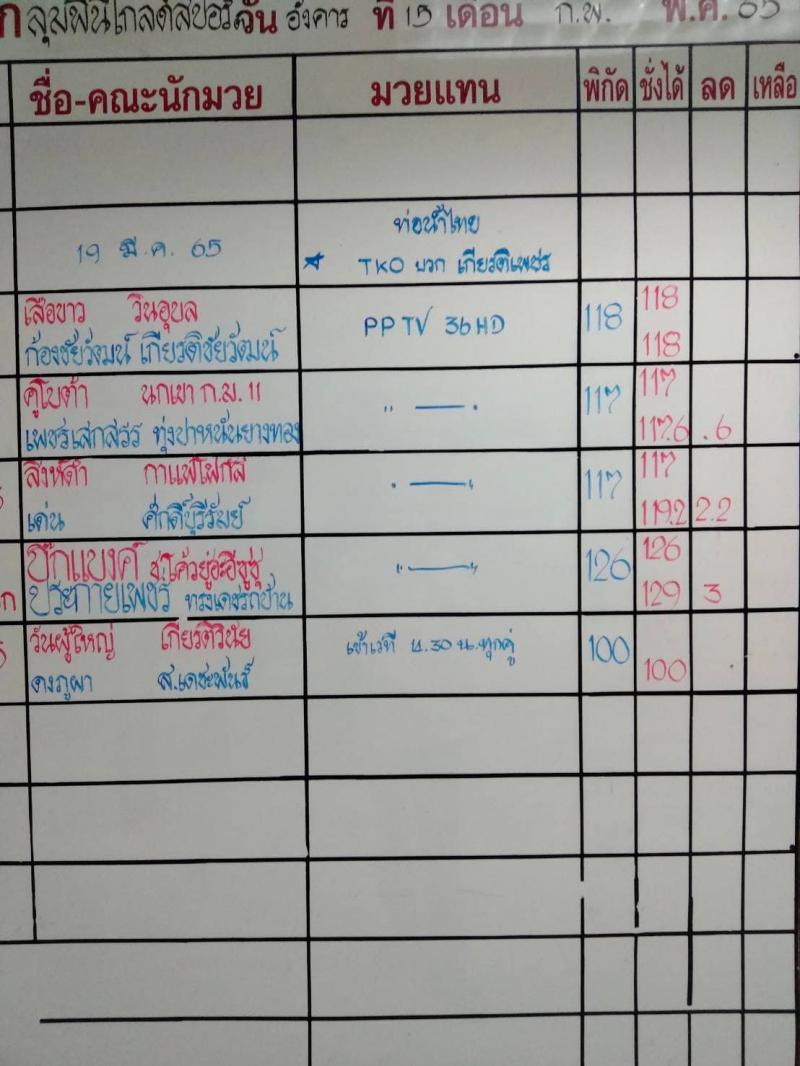 วัน อังคาร ที่ 15 เดือน ก.พ. พ.ศ. 65
ชื่อ-คณะนักมวย มวยแทน พิกัด ชั่งได้ ลด เหลือ
19 มี.ค. 65 ท่อน้ำไทย
★ TKO บวก เกียรติเพชร
เสือขาว วินอุบล PPTV 36HD 118 118
ก้องชัยวัฒน์ เกียรติชัยวัฒน์ 118
คูโบต้า นกเขา ก.ม. 11 " — " 117 117
เพชรเสกสรร ทุ่งปาหนันยางทอง 117.6 .6
สิงห์ดำ กาแฟโฟกัส " — " 117 117
เด่น ศักดิ์บุรีรัมย์ 119.2 2.2
บิ๊กแบงค์ " — " 126 126
ประกายเพชร 129 3
วันผู้ใหญ่ เกียรติวินัย เข้าเวที 11.30 น. ทุกคู่ 100
ดงภูผา ส.เดชะพันธ์ 100